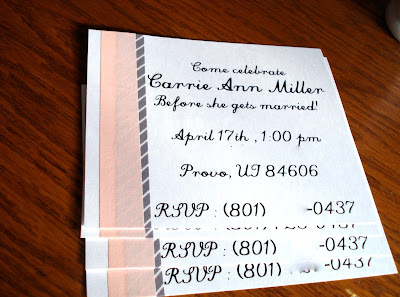 Come celebrate
Carrie Ann Miller
Before she gets married!
April 17th , 1:00 pm
Provo, UT 84606
RSVP : (801) -0437
-0437
RSVP : (801) -0437
RSVP : (801) -0437